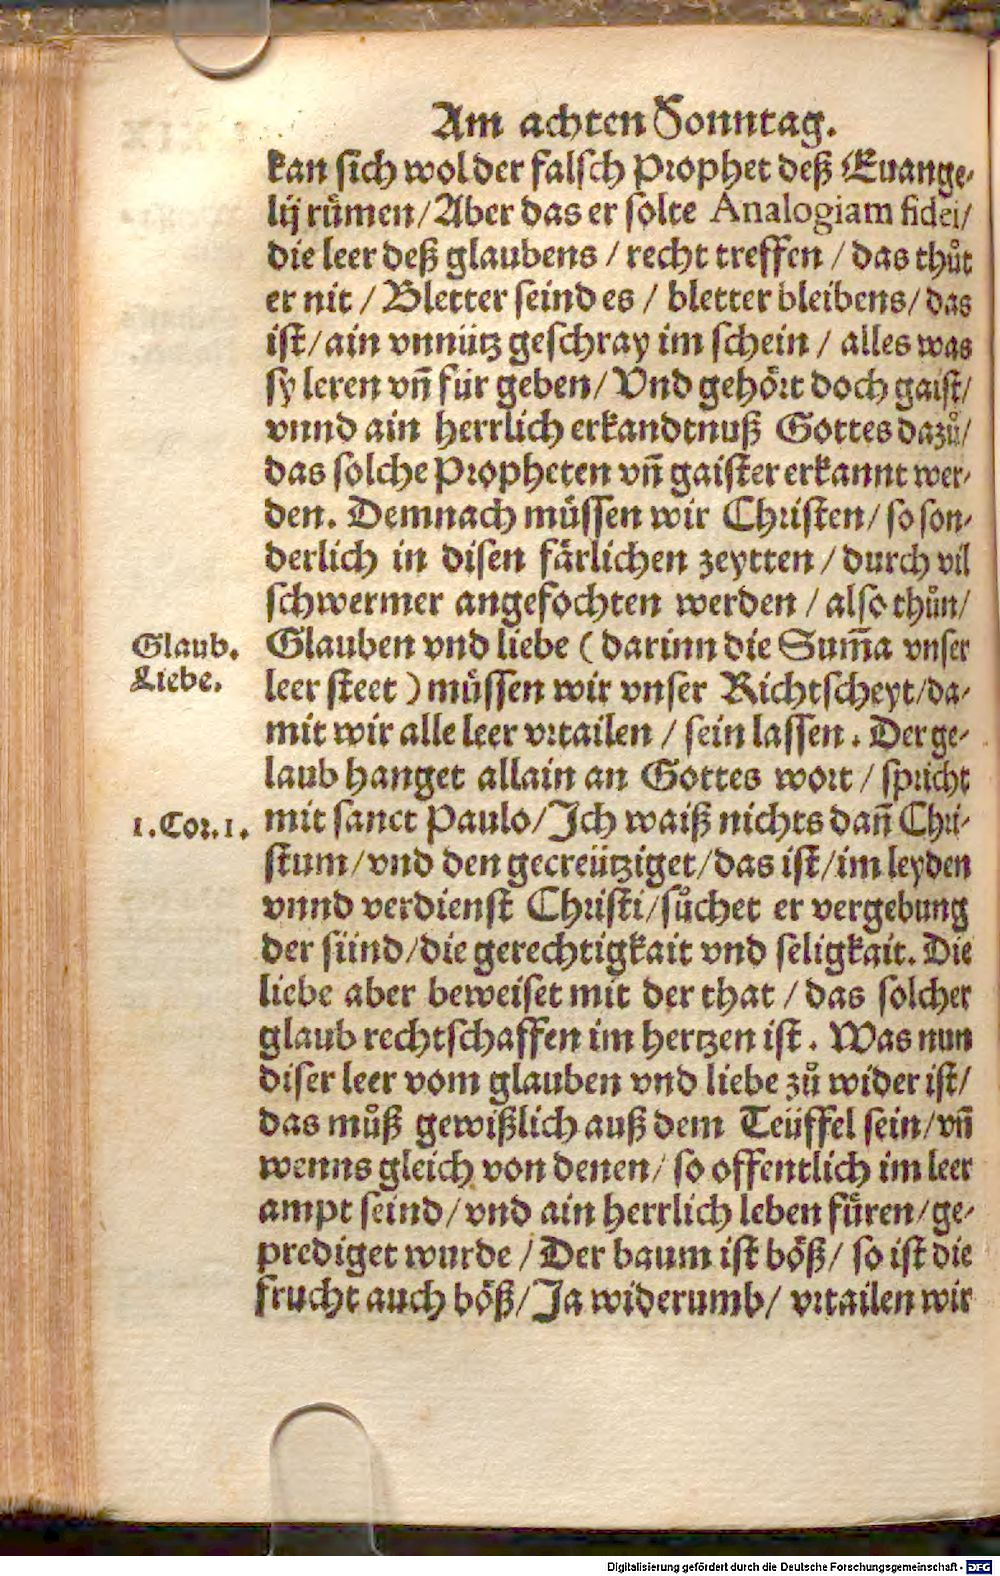 Am achten Sonntag.
kan sich wol der falsch Prophet deß Euange⸗
lij ruͤmen/Aber das er solte Analogiam fidei/
die leer deß glaubens / recht treffen / das thuͦt
er nit / Bletter seind es / bletter bleibens/ das
ist/ain vnnütz geschray im schein / alles was
sy leren vñ für geben/ Vnd gehoͤrt doch gaist/
vnnd ain herrlich erkandtnuß Gottes dazuͦ/
das solche Propheten vñ gaister erkannt wer⸗
den. Demnach muͤssen wir Christen/ so son⸗
derlich in disen faͤrlichen zeytten / durch vil
schwermer angefochten werden / also thuͦn/
Glaub.
Liebe.
Glauben vnd liebe ( darinn die Sum̃a vnser
leer steet ) muͤssen wir vnser Richtscheyt/da⸗
mit wir alle leer vrtailen / sein lassen. Der ge⸗
laub hanget allain an Gottes wort / spricht
1.Cor.1.
mit sanct Paulo/Ich waiß nichts dañ Chri⸗
stum/vnd den gecreütziget/das ist/im leyden
vnnd verdienst Christi/suͦchet er vergebung
der sünd/die gerechtigkait vnd seligkait. Die
liebe aber beweiset mit der that / das solcher
glaub rechtschaffen im hertzen ist. Was nun
diser leer vom glauben vnd liebe zuͦ wider ist/
das muͦß gewißlich auß dem Teüffel sein/vñ
wenns gleich von denen/ so offentlich im leer
ampt seind/vnd ain herrlich leben fuͤren/ge⸗
prediget wurde / Der baum ist boͤß/ so ist die
frucht auch boͤß/Ja widerumb/ vrtailen wir
Digitalisierung gefördert durch die Deutsche Forschungsgemeinschaft - DFG